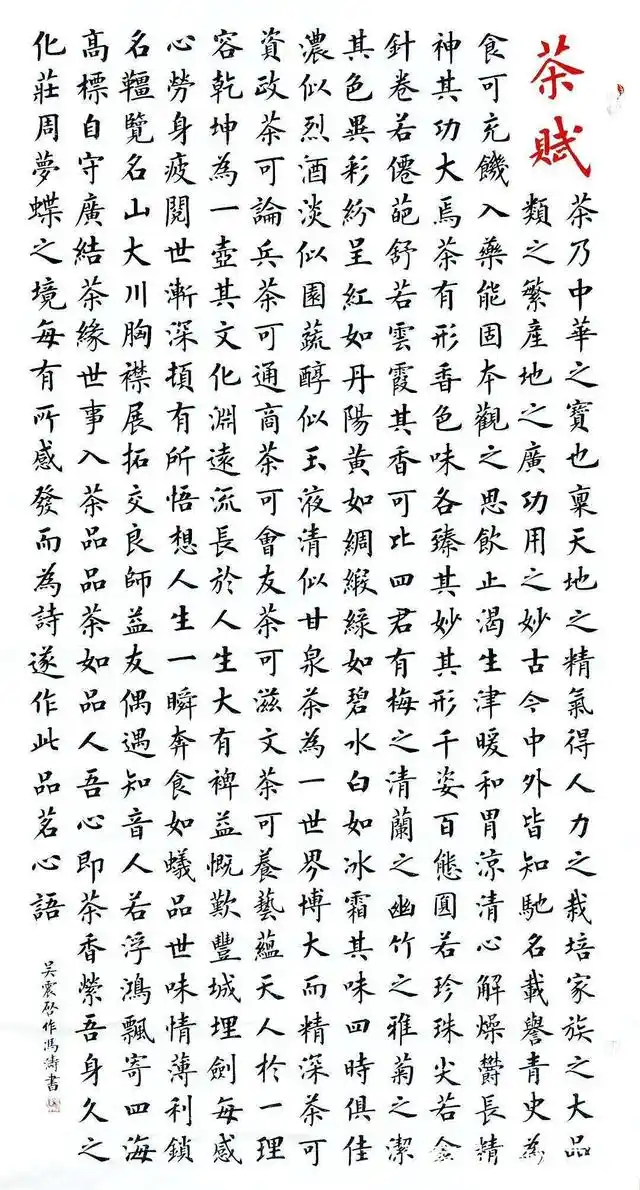 茶賦
茶乃中華之寶也稟天地之精氣得人力之栽培家族之大品
類之繁產地之廣功用之妙古今中外皆知馳名載譽青史為
食可充饑入藥能固本觀之思飲止渴生津暖和胃涼清心解燥欝長精
神其功大焉茶有形香色味各臻其妙其形千姿百態圓若珍珠尖若金
針卷若僊葩舒若雲霞其香可比四君有梅之清蘭之幽竹之雅菊之潔
其色異彩紛呈紅如丹陽黃如綢緞綠如碧水白如冰霜其味四時俱佳
濃似烈酒淡似園蔬醇似玉液清似甘泉茶為一世界博大而精深茶可
資政茶可論兵茶可通商茶可會友茶可滋文茶可養藝蘊天人於一理
容乾坤為一壺其文化淵遠流長於人生大有裨益慨歎豐城埋劍每感
心勞身疲閱世漸深頓有所悟想人生一瞬奔食如蟻品世味情薄利鎖
名韁覽名山大川胸襟展拓交良師益友偶遇知音人若浮鴻飄寄四海
高標自守廣結茶緣世事入茶品品茶如品人吾心即茶香縈吾身久之
化莊周夢蝶之境每有所感發而為詩遂作此品茗心語
吳震啓作馮濤書